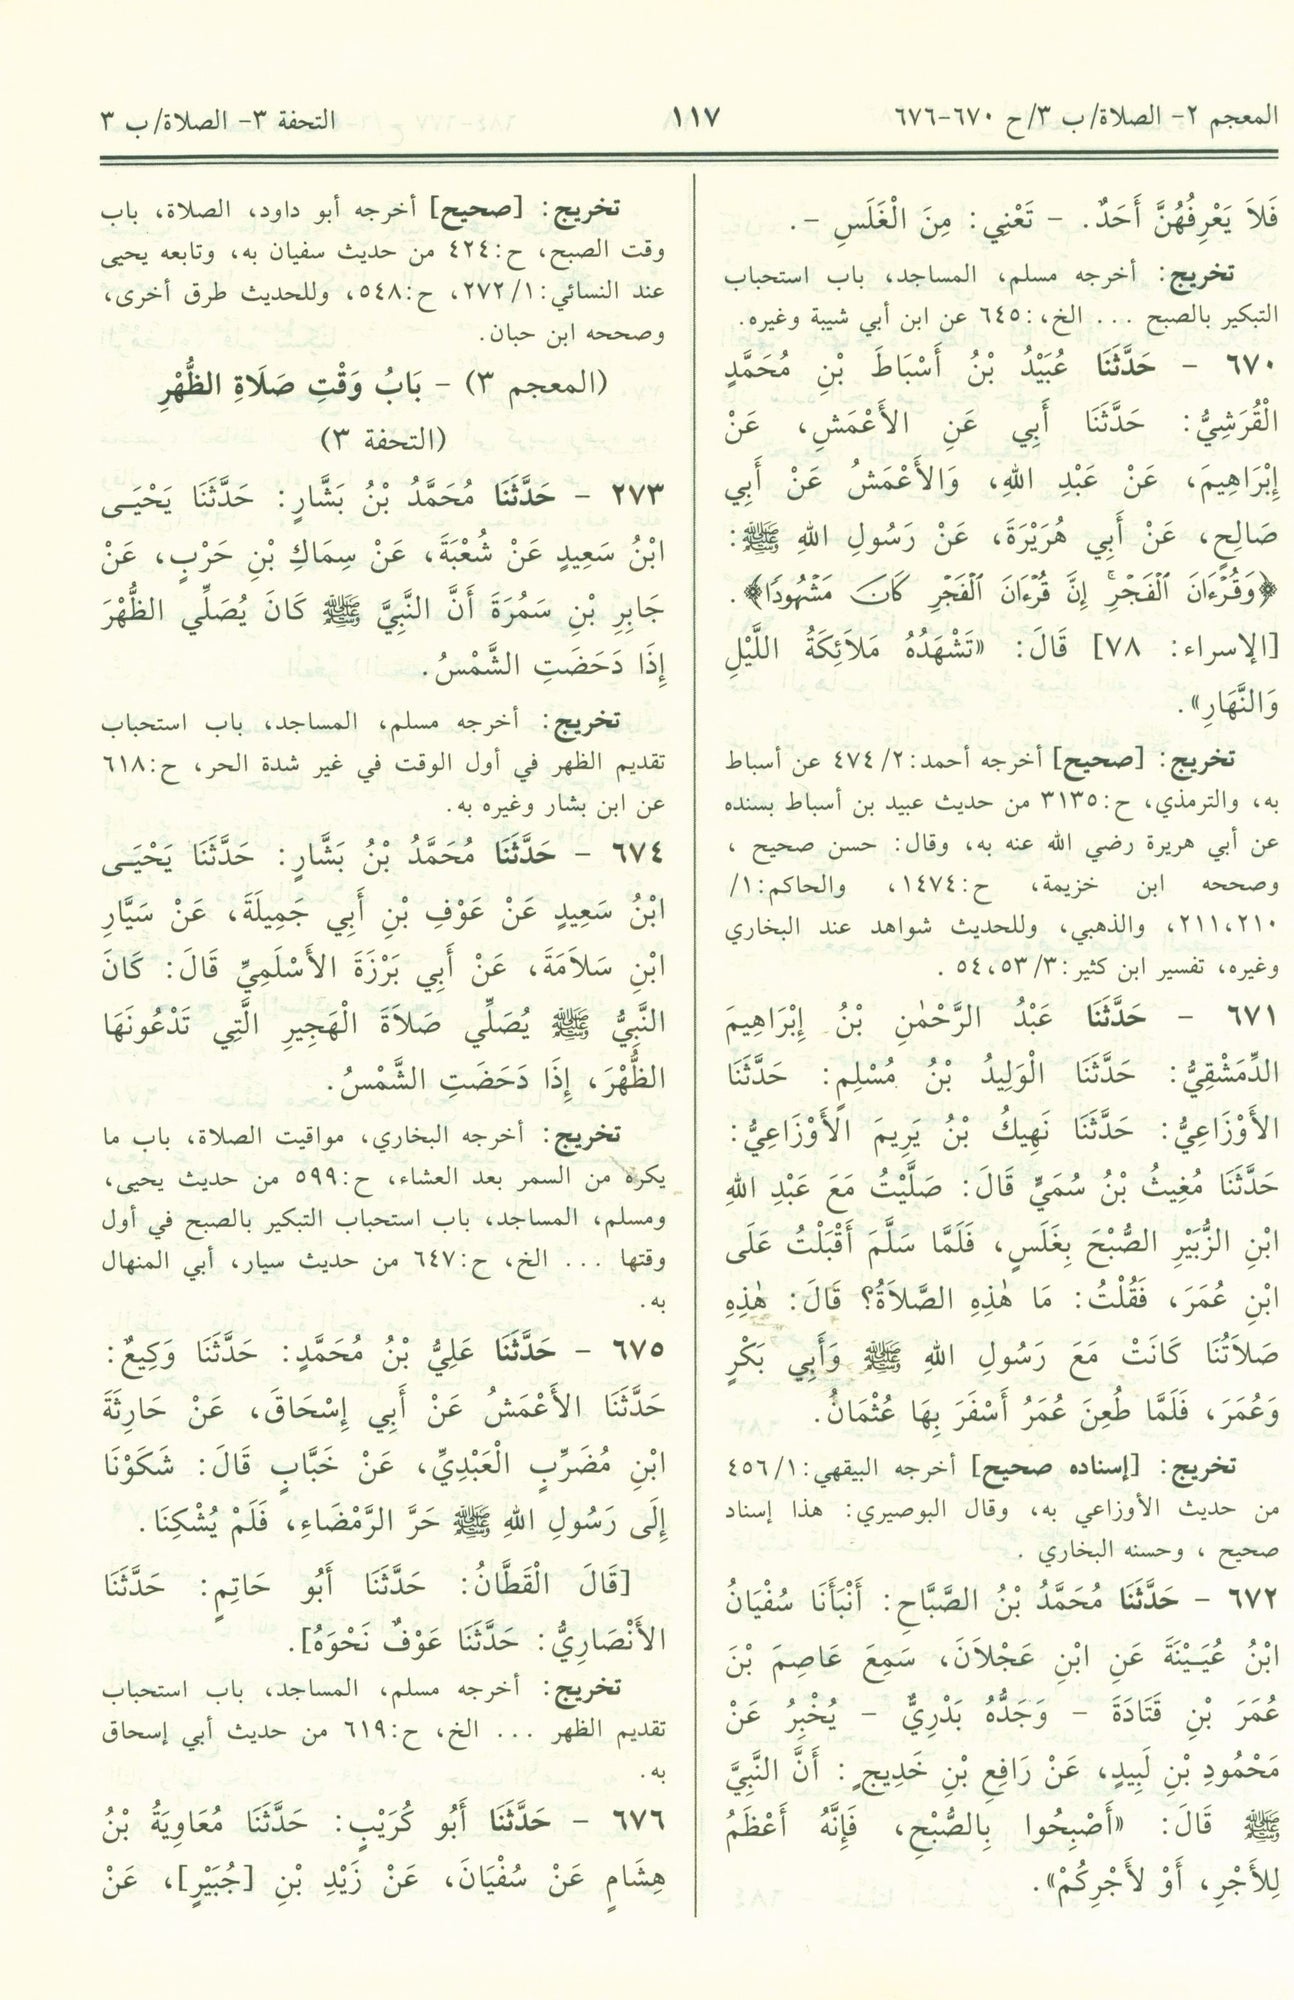 المعجم ٢- الصلاة/ ب ٣/ح ٦٧٠-٦٧٦
١١٧
التحفة ٣- الصلاة/ ب ٣
فَلاَ يَعْرِفُهُنَّ أَحَدٌ. - تَعْنِي: مِنَ الْغَلَسِ -.
تخريج: أخرجه مسلم، المساجد، باب استحباب
التبكير بالصبح ... الخ،:٦٤٥ عن ابن أبي شيبة وغيره.
٦٧٠ - حَدَّثَنَا عُبَيْدُ بْنُ أَسْبَاطَ بْنِ مُحَمَّدٍ
الْقُرَشِيُّ: حَدَّثَنَا أَبِي عَنِ الأَعْمَشِ، عَنْ
إِبْرَاهِيمَ، عَنْ عَبْدِ اللهِ، وَالأَعْمَشُ عَنْ أَبِي
صَالِحٍ، عَنْ أَبِي هُرَيْرَةَ، عَنْ رَسُولِ اللهِ ﷺ:
﴿وَقُرْءَانَ ٱلْفَجْرِۖ إِنَّ قُرْءَانَ ٱلْفَجْرِ كَانَ مَشْهُودًا﴾.
[الإسراء: ٧٨] قَالَ: «تَشْهَدُهُ مَلاَئِكَةُ اللَّيْلِ
وَالنَّهَارِ».
تخريج: [صحيح] أخرجه أحمد:٢/ ٤٧٤ عن أسباط
به، والترمذي، ح:٣١٣٥ من حديث عبيد بن أسباط بسنده
عن أبي هريرة رضي الله عنه به، وقال: حسن صحيح ،
وصححه ابن خزيمة، ح:١٤٧٤، والحاكم:١/
٢١١،٢١٠، والذهبي، وللحديث شواهد عند البخاري
وغيره، تفسير ابن كثير:٣/ ٥٤،٥٣ .
٦٧١ - حَدَّثَنَا عَبْدُ الرَّحْمٰنِ بْنُ إِبْرَاهِيمَ
الدِّمَشْقِيُّ: حَدَّثَنَا الْوَلِيدُ بْنُ مُسْلِمٍ: حَدَّثَنَا
الأَوْزَاعِيُّ: حَدَّثَنَا نَهِيكُ بْنُ يَرِيمَ الأَوْزَاعِيُّ:
حَدَّثَنَا مُغِيثُ بْنُ سُمَيٍّ قَالَ: صَلَّيْتُ مَعَ عَبْدِ اللهِ
ابْنِ الزُّبَيْرِ الصُّبْحَ بِغَلَسٍ، فَلَمَّا سَلَّمَ أَقْبَلْتُ عَلَى
ابْنِ عُمَرَ، فَقُلْتُ: مَا هٰذِهِ الصَّلاَةُ؟ قَالَ: هٰذِهِ
صَلاَتُنَا كَانَتْ مَعَ رَسُولِ اللهِ ﷺ وَأَبِي بَكْرٍ
وَعُمَرَ، فَلَمَّا طُعِنَ عُمَرُ أَسْفَرَ بِهَا عُثْمَانُ.
تخريج: [إسناده صحيح] أخرجه البيهقي:١/ ٤٥٦
من حديث الأوزاعي به، وقال البوصيري: هذا إسناد
صحيح ، وحسنه البخاري .
٦٧٢ - حَدَّثَنَا مُحَمَّدُ بْنُ الصَّبَّاحِ: أَنْبَأَنَا سُفْيَانُ
ابْنُ عُيَيْنَةَ عَنِ ابْنِ عَجْلاَنَ، سَمِعَ عَاصِمَ بْنَ
عُمَرَ بْنِ قَتَادَةَ - وَجَدُّهُ بَدْرِيٌّ - يُخْبِرُ عَنْ
مَحْمُودِ بْنِ لَبِيدٍ، عَنْ رَافِعِ بْنِ خَدِيجٍ: أَنَّ النَّبِيَّ
ﷺ قَالَ: «أَصْبِحُوا بِالصُّبْحِ، فَإِنَّهُ أَعْظَمُ
لِلأَجْرِ، أَوْ لأَجْرِكُمْ».
تخريج: [صحيح] أخرجه أبو داود، الصلاة، باب
وقت الصبح، ح:٤٢٤ من حديث سفيان به، وتابعه يحيى
عند النسائي:١/ ٢٧٢، ح:٥٤٨، وللحديث طرق أخرى،
وصححه ابن حبان.
(المعجم ٣) - بَابُ وَقْتِ صَلَاةِ الظُّهْرِ
(التحفة ٣)
٢٧٣ - حَدَّثَنَا مُحَمَّدُ بْنُ بَشَّارٍ: حَدَّثَنَا يَحْيَـى
ابْنُ سَعِيدٍ عَنْ شُعْبَةَ، عَنْ سِمَاكِ بْنِ حَرْبٍ، عَنْ
جَابِرِ بْنِ سَمُرَةَ أَنَّ النَّبِيَّ ﷺ كَانَ يُصَلِّي الظُّهْرَ
إِذَا دَحَضَتِ الشَّمْسُ.
تخريج: أخرجه مسلم، المساجد، باب استحباب
تقديم الظهر في أول الوقت في غير شدة الحر، ح:٦١٨
عن ابن بشار وغيره به.
٦٧٤ - حَدَّثَنَا مُحَمَّدُ بْنُ بَشَّارٍ: حَدَّثَنَا يَحْيَـى
ابْنُ سَعِيدٍ عَنْ عَوْفِ بْنِ أَبِي جَمِيلَةَ، عَنْ سَيَّارِ
ابْنِ سَلاَمَةَ، عَنْ أَبِي بَرْزَةَ الأَسْلَمِيِّ قَالَ: كَانَ
النَّبِيُّ ﷺ يُصَلِّي صَلاَةَ الْهَجِيرِ الَّتِي تَدْعُونَهَا
الظُّهْرَ، إِذَا دَحَضَتِ الشَّمْسُ.
تخريج: أخرجه البخاري، مواقيت الصلاة، باب ما
يكره من السمر بعد العشاء، ح:٥٩٩ من حديث يحيى،
ومسلم، المساجد، باب استحباب التبكير بالصبح في أول
وقتها ... الخ، ح:٦٤٧ من حديث سيار، أبي المنهال
به.
٦٧٥ - حَدَّثَنَا عَلِيُّ بْنُ مُحَمَّدٍ: حَدَّثَنَا وَكِيعٌ:
حَدَّثَنَا الأَعْمَشُ عَنْ أَبِي إِسْحَاقَ، عَنْ حَارِثَةَ
ابْنِ مُضَرِّبٍ الْعَبْدِيِّ، عَنْ خَبَّابٍ قَالَ: شَكَوْنَا
إِلَى رَسُولِ اللهِ ﷺ حَرَّ الرَّمْضَاءِ، فَلَمْ يُشْكِنَا.
[قَالَ الْقَطَّانُ: حَدَّثَنَا أَبُو حَاتِمٍ: حَدَّثَنَا
الأَنْصَارِيُّ: حَدَّثَنَا عَوْفٌ نَحْوَهُ].
تخريج: أخرجه مسلم، المساجد، باب استحباب
تقديم الظهر ... الخ، ح:٦١٩ من حديث أبي إسحاق
به.
٦٧٦ - حَدَّثَنَا أَبُو كُرَيْبٍ: حَدَّثَنَا مُعَاوِيَةُ بْنُ
هِشَامٍ عَنْ سُفْيَانَ، عَنْ زَيْدِ بْنِ [جُبَيْرٍ]، عَنْ